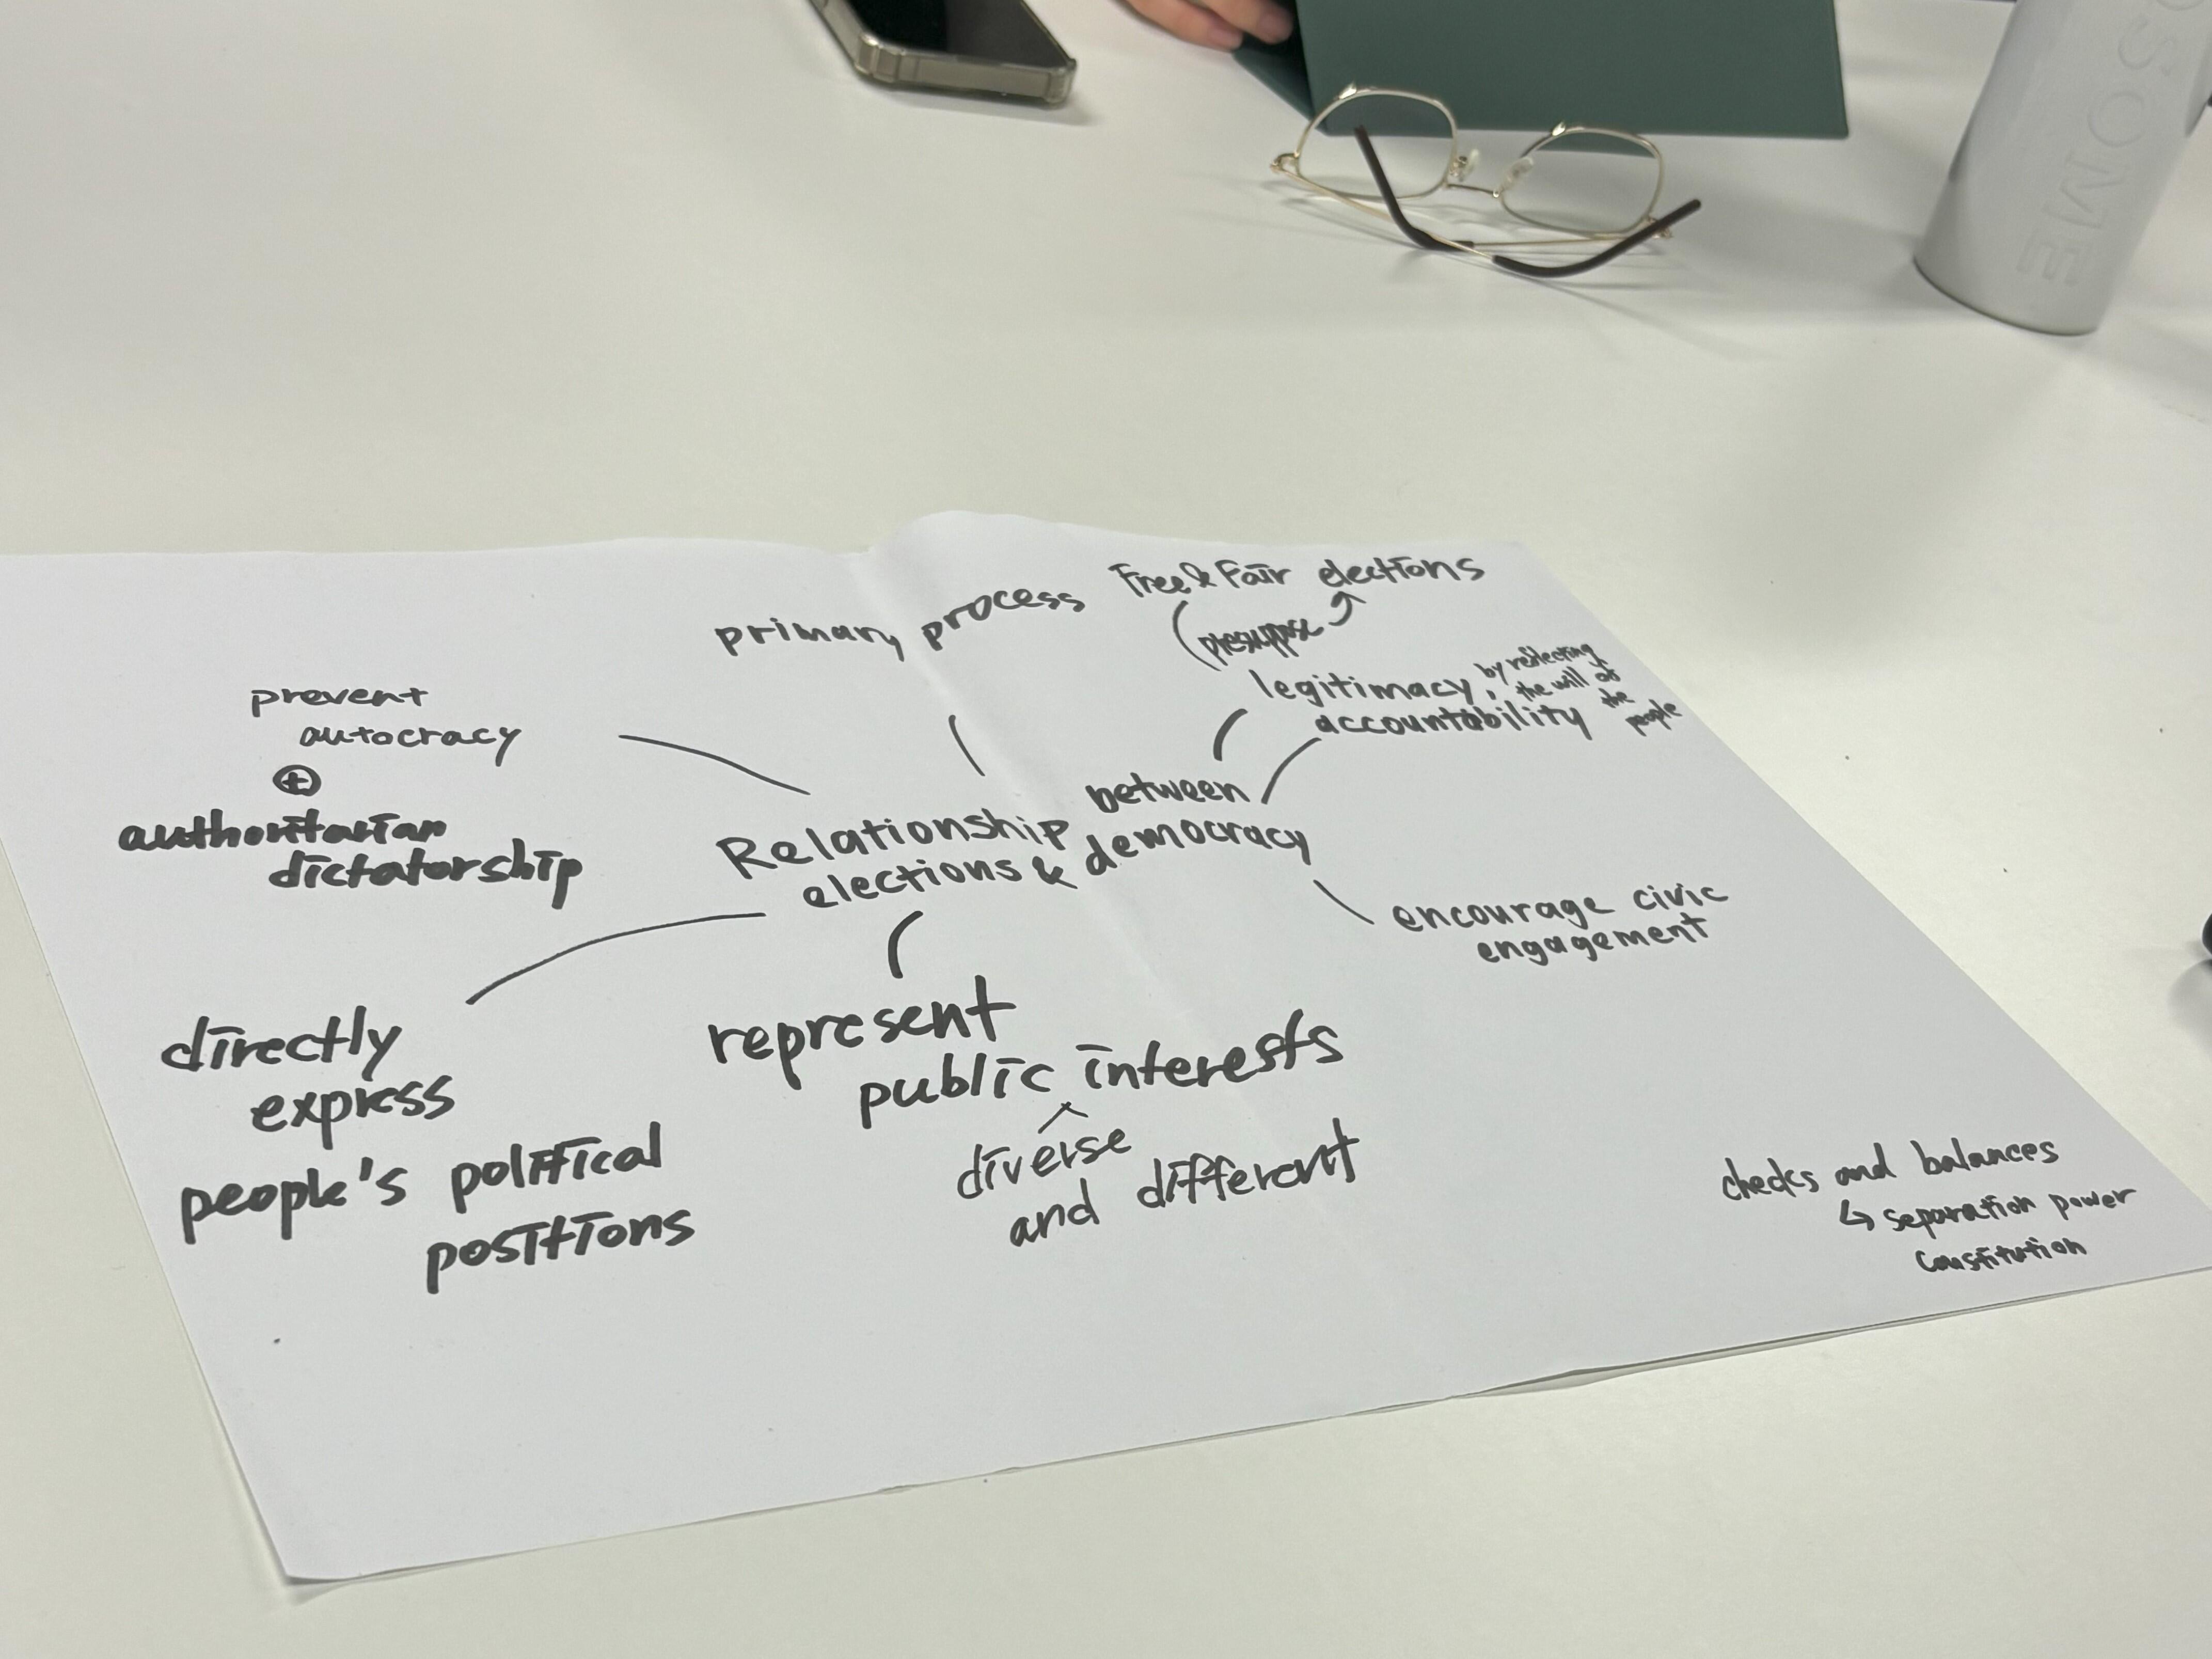 SOME
primary process
Free & Fair elections
presuppose
legitimacy,
accountability
by reflecting
the will of
the
people
prevent
autocracy
+
authoritarian
dictatorship
Relationship between
elections & democracy
encourage civic
engagement
directly
express
people's political
positions
represent
public interests
diverse
and different
checks and balances
↳ separation power
Constitution